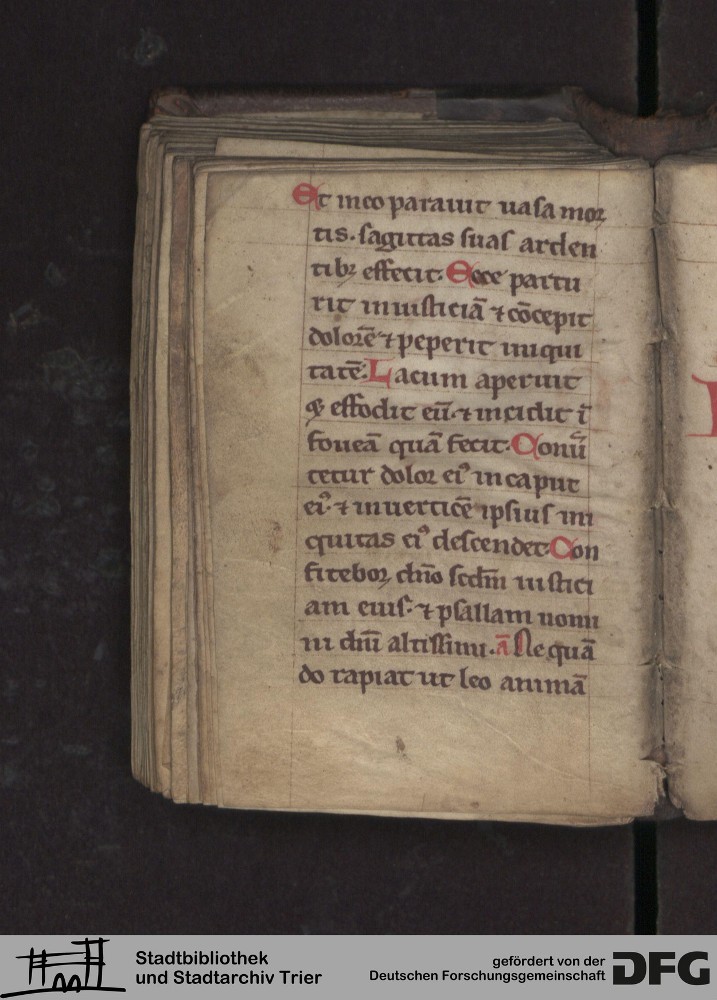 Et in eo parauit uasa moꝛ
tis. sagittas suas arden
tibꝫ effecit. Ecce partu
rit iniusticiā ⁊ cōcepit
doloꝛē ⁊ peperit iniqui
tatē. Lacum aperuit
⁊ effodit eū. ⁊ incidit ī
foueā quā fecit. Conũ
tetur doloꝛ eiꝰ in caput
eiꝰ. ⁊ in uerticē ipsius ini
quitas eiꝰ descendet. Con
fiteboꝛ dn̄o scdm̄ iustici
am eius. ⁊ psallam nomi
ni dn̄i altissimi. ā Ne quā
do rapiat ut leo animā
Stadtbibliothek
und Stadtarchiv Trier
gefördert von der
Deutschen Forschungsgemeinschaft
DFG